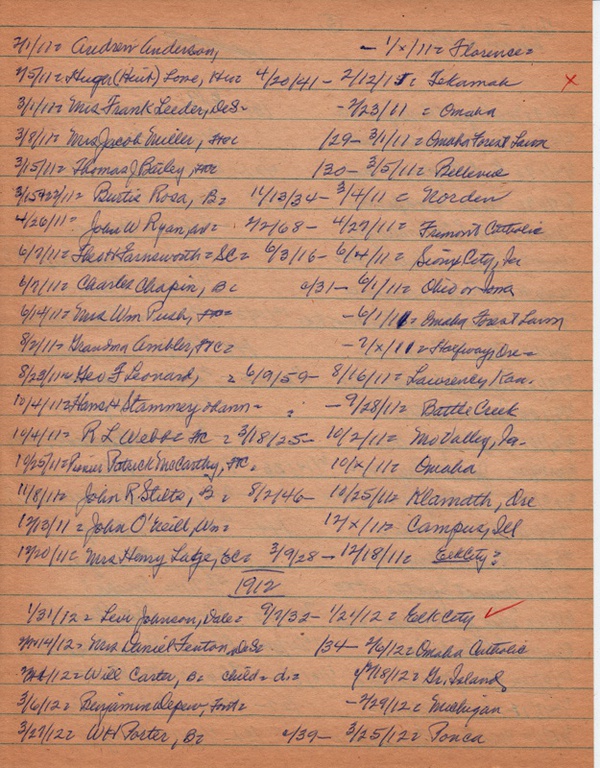 2/1/11= Andrew Anderson, - 1/x/11= Florence=
2/5/11= Huger (Hiut) Love, 4/20/41 - 2/12/11= Tekamah x
3/1/11= Mrs Frank Leeder, DeS= - 2/23/11 = Omaha
3/8/11= Mrs Jacob Miller, /29 - 3/1/11= Omaha Forest Lawn
3/15/11= Thomas J Bailey, /30 - 3/5/11= Bellevue
3/15+22/11= Burtie Rosa, B= 11/13/34 - 3/4/11 = Norden
4/26/11= John W Ryan, 2/2/68 - 4/27/11= Fremont Catholic
6/7/11= Theo H Farnsworth= SC= 6/3/16 - 6/4/11= Sioux City, Ia
6/7/11= Charles Chapin, B= /31 - 6/1/11= Ohio or Iowa
6/14/11= Mrs Wm Push, - 6/1/11= Omaha Forest Lawn
8/2/11= Grandma Ambler, FC= - 7/x/11= Halfway, Ore=
8/23/11= Geo F Leonard, = 6/9/59 - 8/16/11= Lawrence, Kan.
10/4/11= Hans H Stammey - 9/28/11= Battle Creek
10/4/11= R L Webb= FC = 3/18/25 - 10/2/11= Mo Valley, Ia=
10/25/11= Pionier Patrick McCarthy, FC= 10/x/11= Omaha
11/8/11= John R Stiltz, B= 8/2/46 - 10/25/11= Klamath, Ore
12/13/11= John O'Neill, Wn= 12/x/11= Campus, Ill
12/20/11= Mrs Henry Lutge, EC= 3/9/28 - 12/18/11= Elk City=
1912
1/31/12= Levi Johnson, Dale= 9/7/32 - 1/21/12= Elk City ✓
14/12= Mrs Daniel Fenton, DeS= /34 - 2/6/12= Omaha Catholic
/12= Will Carter, B= child= d.= 18/12= Gr. Island
3/6/12= Benjamin Depew, Font= - 2/29/12= Michigan
3/27/12= W H Porter, B= /39 - 3/25/12= Ponca